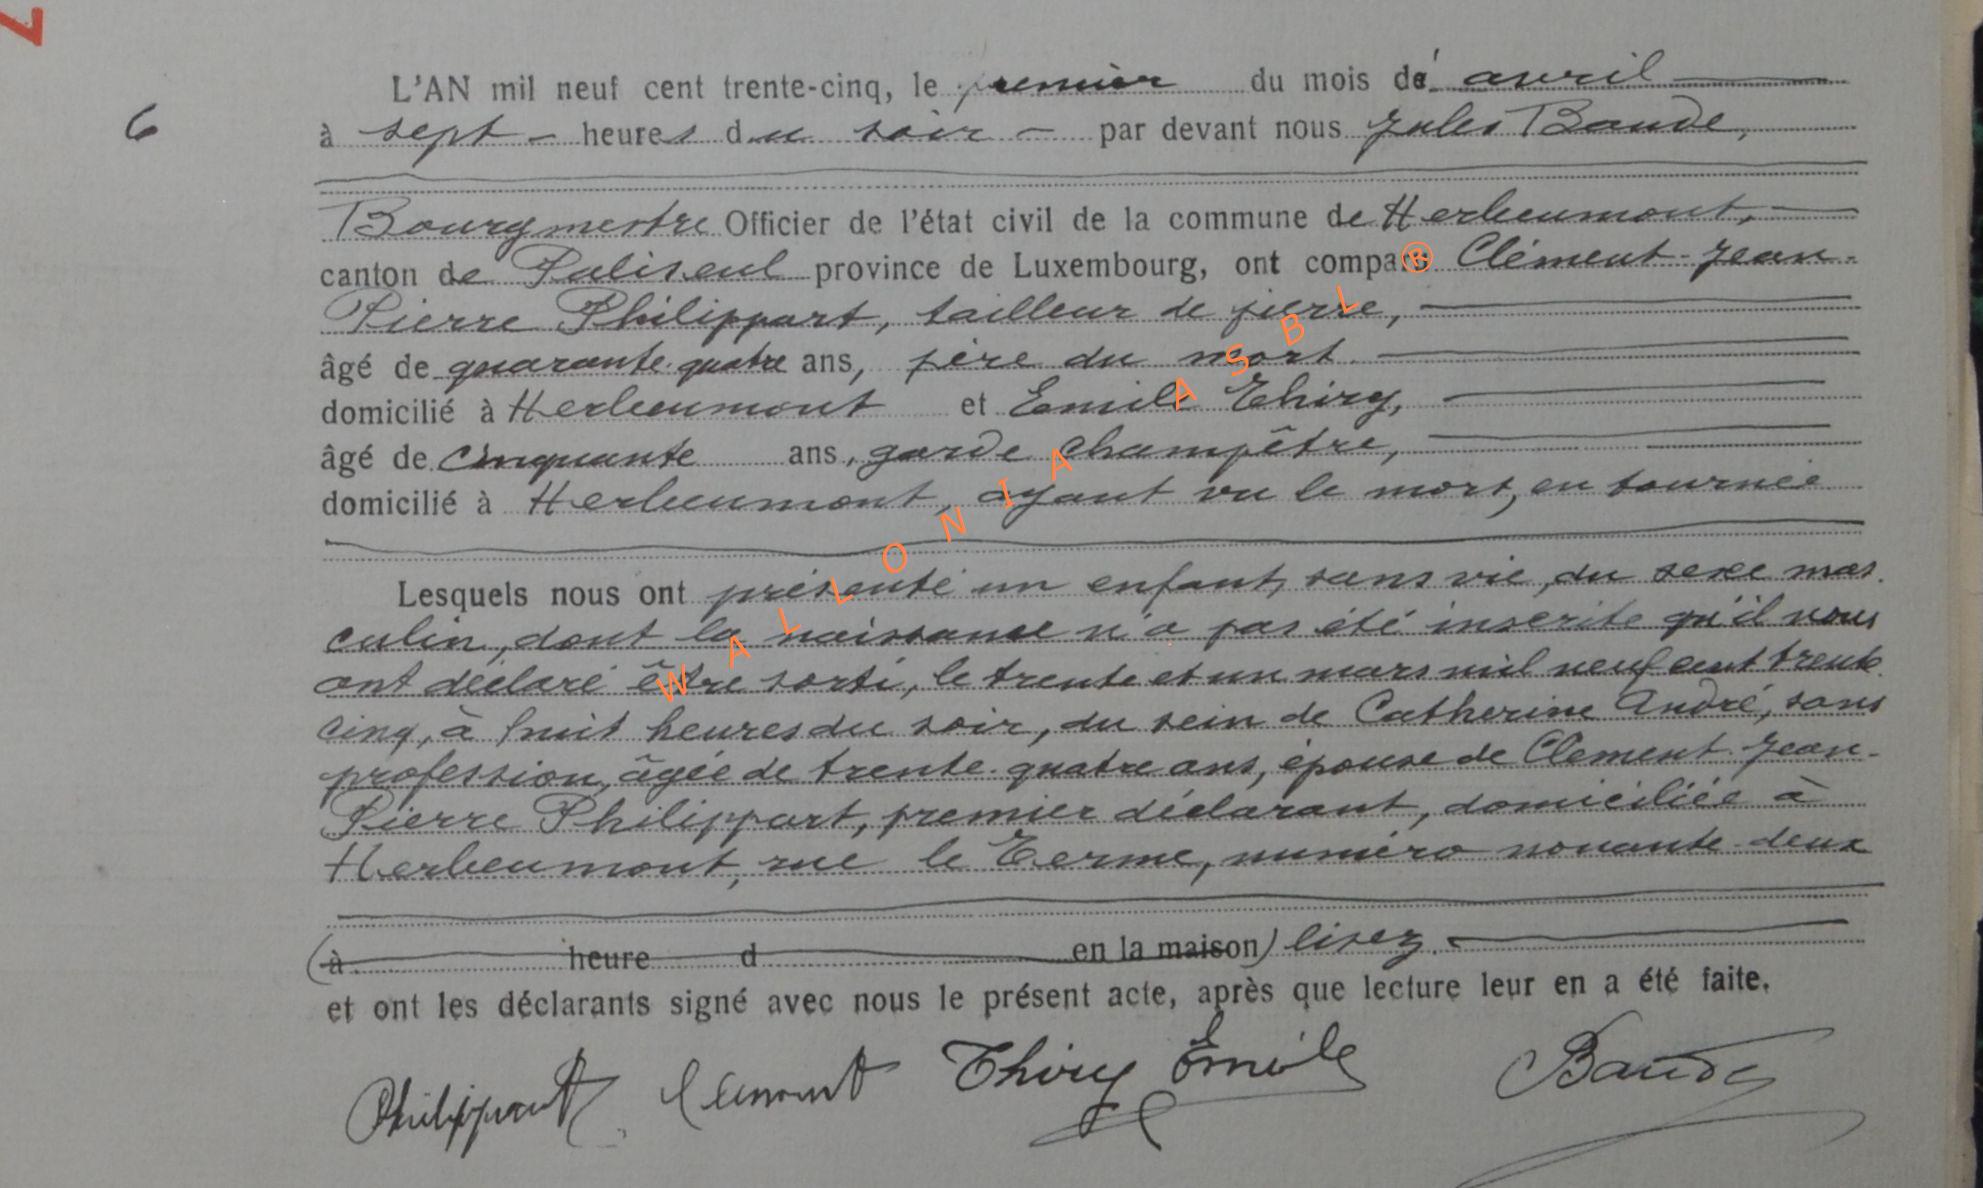 L'AN mil neuf cent trente-cinq, le premier du mois de avril
6
à sept heures du soir par devant nous Jules Baude,
Bourgmestre Officier de l'état civil de la commune de Herbeumont,
canton de Paliseul province de Luxembourg, ont comparu Clément-Jean-
Pierre Philippart, tailleur de pierre,
âgé de quarante-quatre ans, père du mort.
domicilié à Herbeumont et Emile Thiry,
âgé de cinquante ans, garde champêtre,
domicilié à Herbeumont, ayant vu le mort, en tournée
Lesquels nous ont présenté un enfant, sans vie, du sexe mas-
culin, dont la naissance n'a pas été inscrite qu'il nous
ont déclaré être sorti, le trente et un mars mil neuf cent trente
cinq, à huit heures du soir, du sein de Catherine André, sans
profession, âgée de trente-quatre ans, épouse de Clément-Jean-
Pierre Philippart, premier déclarant, domiciliée à
Herbeumont, rue le Terme, numéro nonante-deux
(à heure d en la maison) lisez.
et ont les déclarants signé avec nous le présent acte, après que lecture leur en a été faite.
Philippart Clement Thiry Emile Baude
WALLONIA ASBL ®